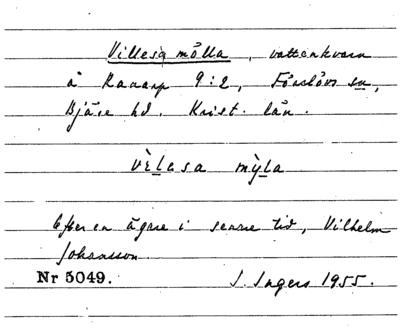 Villesa mölla, vattenkvarn
å Ranarp 9:2, Förslövs sn,
Bjäre hd. Krist. län.
vèlesa mỳla
Efter en ägare i senare tid, Vilhelm
Johansson.
Nr 5049. I. Ingers 1955.